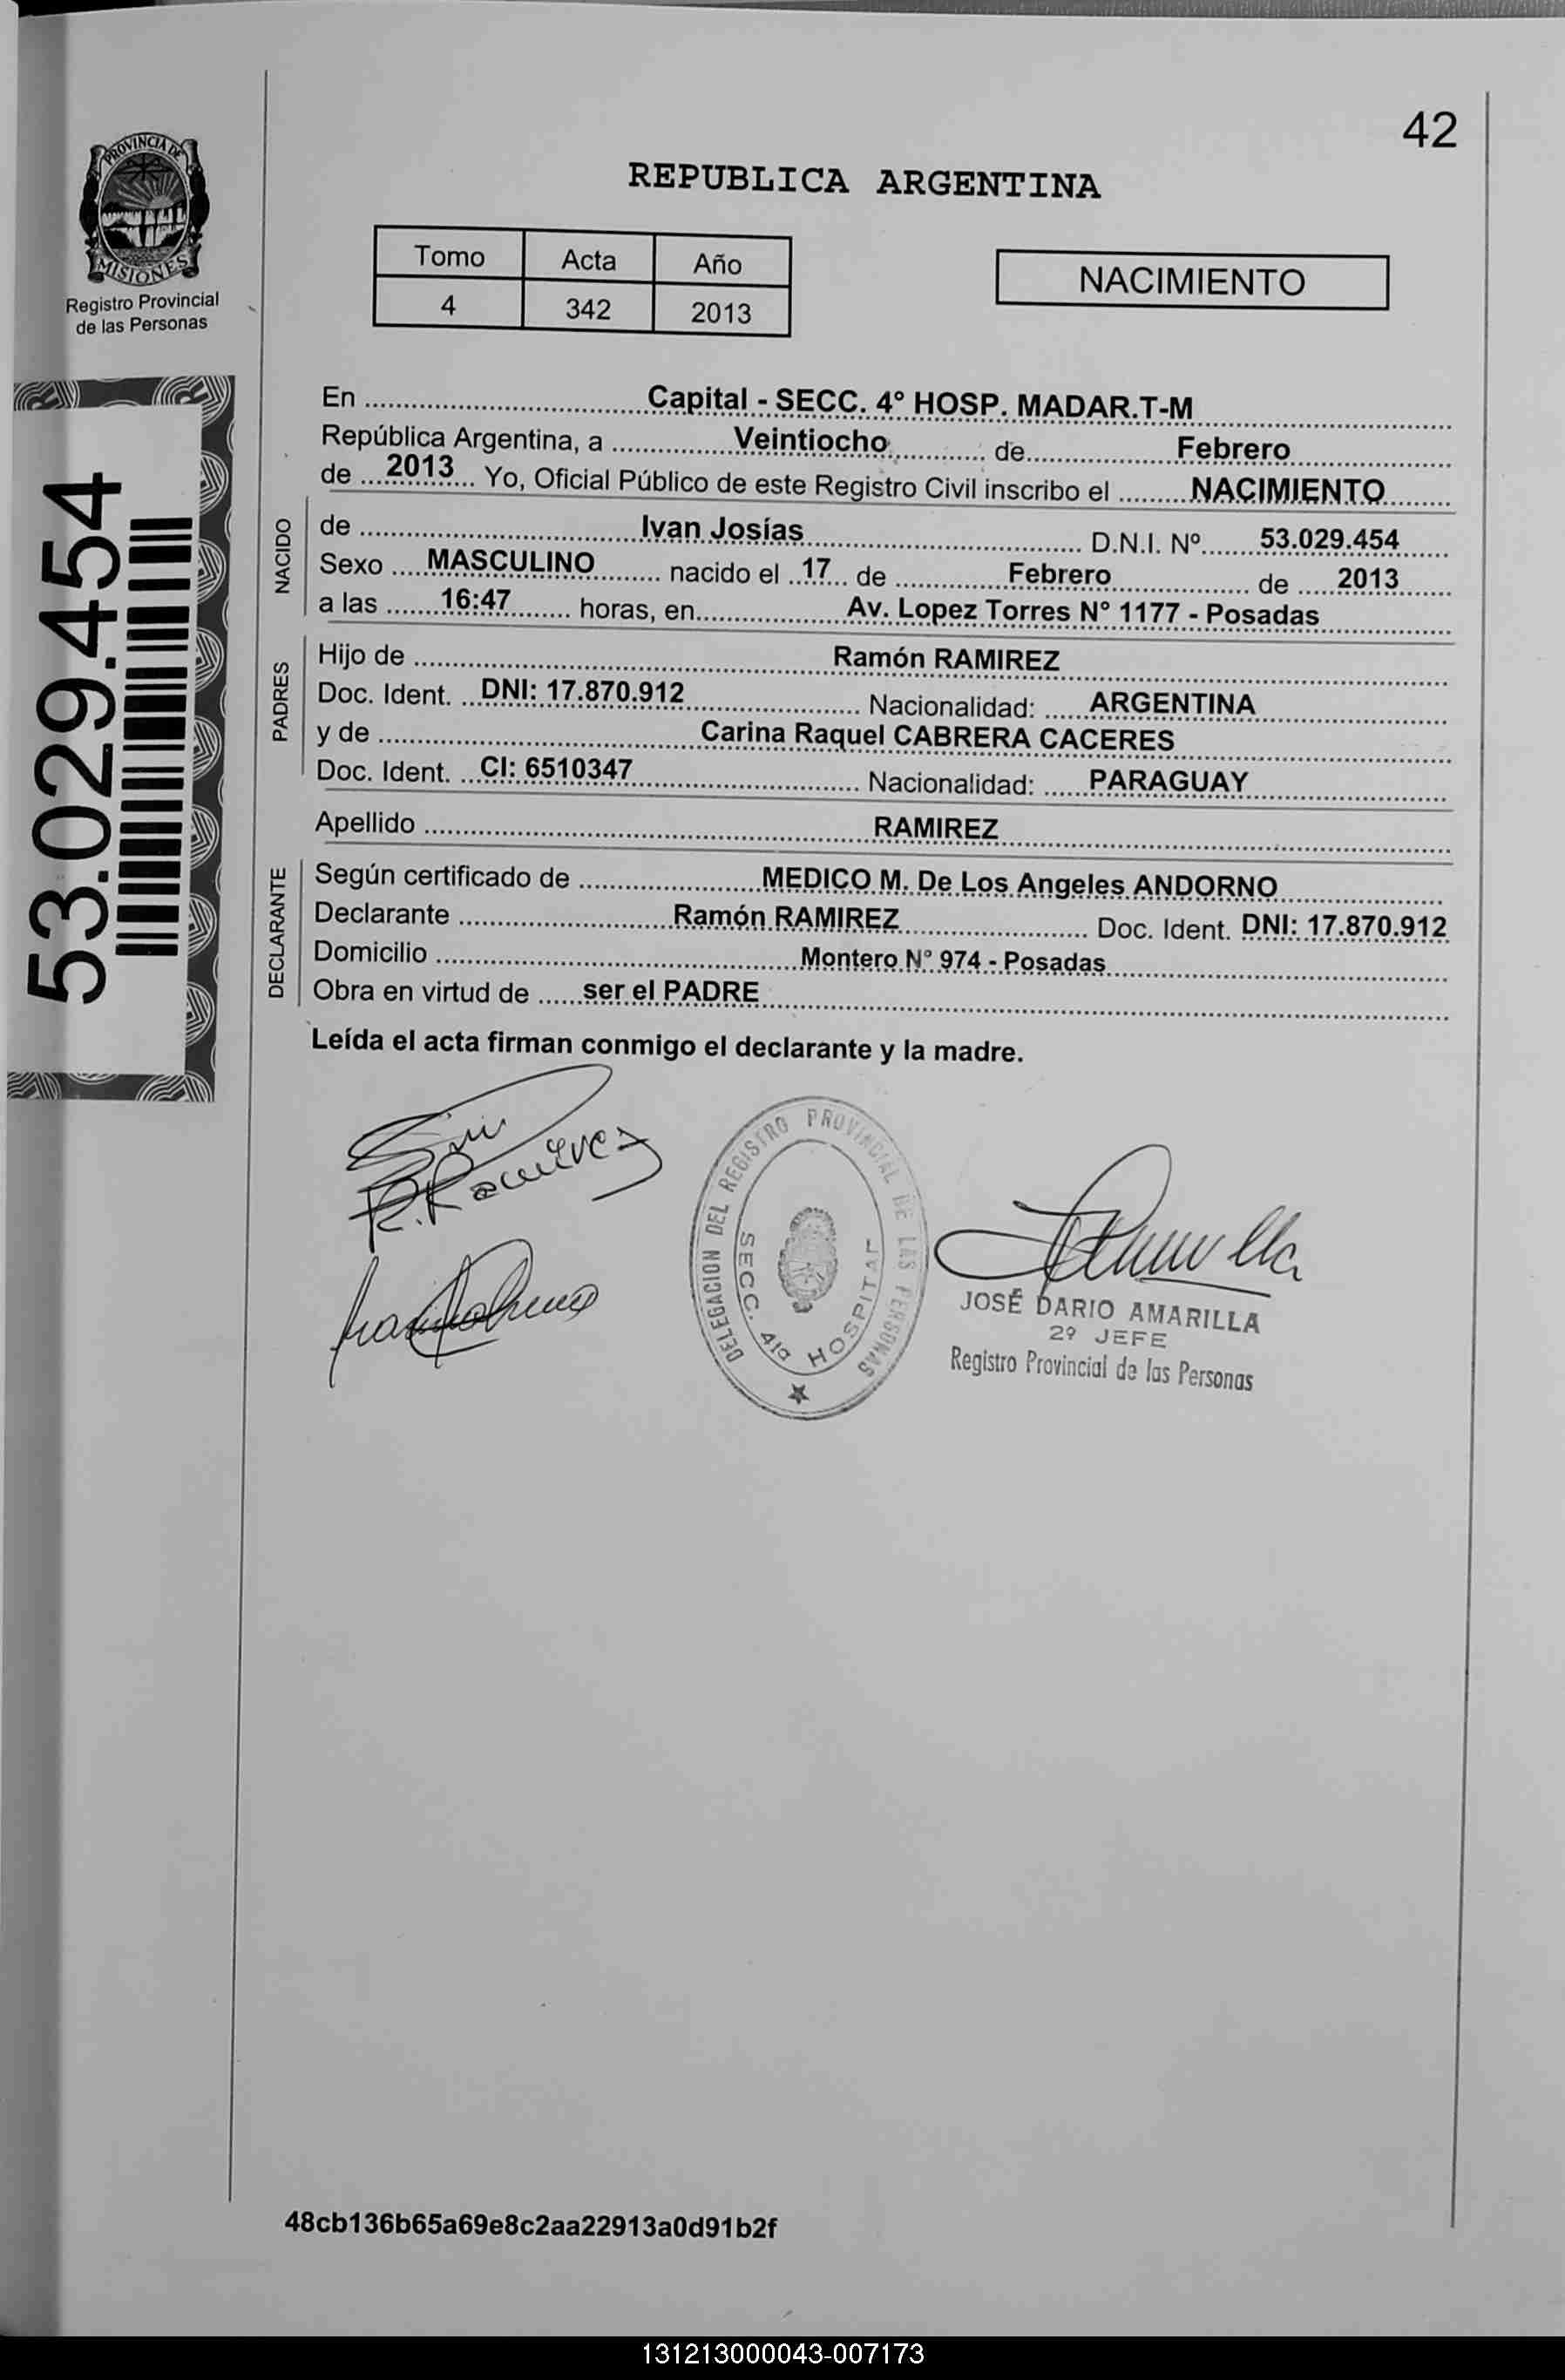 42
PROVINCIA DE
MISIONES
Registro Provincial
de las Personas
REPUBLICA ARGENTINA
Tomo Acta Año
4 342 2013
NACIMIENTO
53.029.454
En Capital - SECC. 4° HOSP. MADAR.T-M
República Argentina, a Veintiocho de Febrero
de 2013 Yo, Oficial Público de este Registro Civil inscribo el NACIMIENTO
NACIDO
de Ivan Josías D.N.I. Nº 53.029.454
Sexo MASCULINO nacido el 17 de Febrero de 2013
a las 16:47 horas, en Av. Lopez Torres N° 1177 - Posadas
PADRES
Hijo de Ramón RAMIREZ
Doc. Ident. DNI: 17.870.912 Nacionalidad: ARGENTINA
y de Carina Raquel CABRERA CACERES
Doc. Ident. CI: 6510347 Nacionalidad: PARAGUAY
Apellido RAMIREZ
DECLARANTE
Según certificado de MEDICO M. De Los Angeles ANDORNO
Declarante Ramón RAMIREZ Doc. Ident. DNI: 17.870.912
Domicilio Montero N° 974 - Posadas
Obra en virtud de ser el PADRE
Leída el acta firman conmigo el declarante y la madre.
R. Ramirez
DELEGACION DEL REGISTRO PROVINCIAL DE LAS PERSONAS
SECC. 4ta HOSPITAL
JOSÉ DARIO AMARILLA
2º JEFE
Registro Provincial de las Personas
48cb136b65a69e8c2aa22913a0d91b2f
131213000043-007173